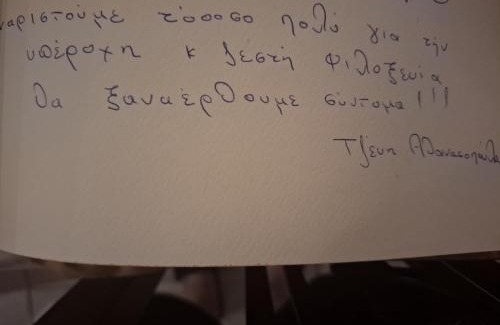 χαριστούμε τόοοσο πολύ για την
υπέροχη κ ζεστή φιλοξενία
Θα ξαναέρθουμε σύντομα!!!
Τζένη